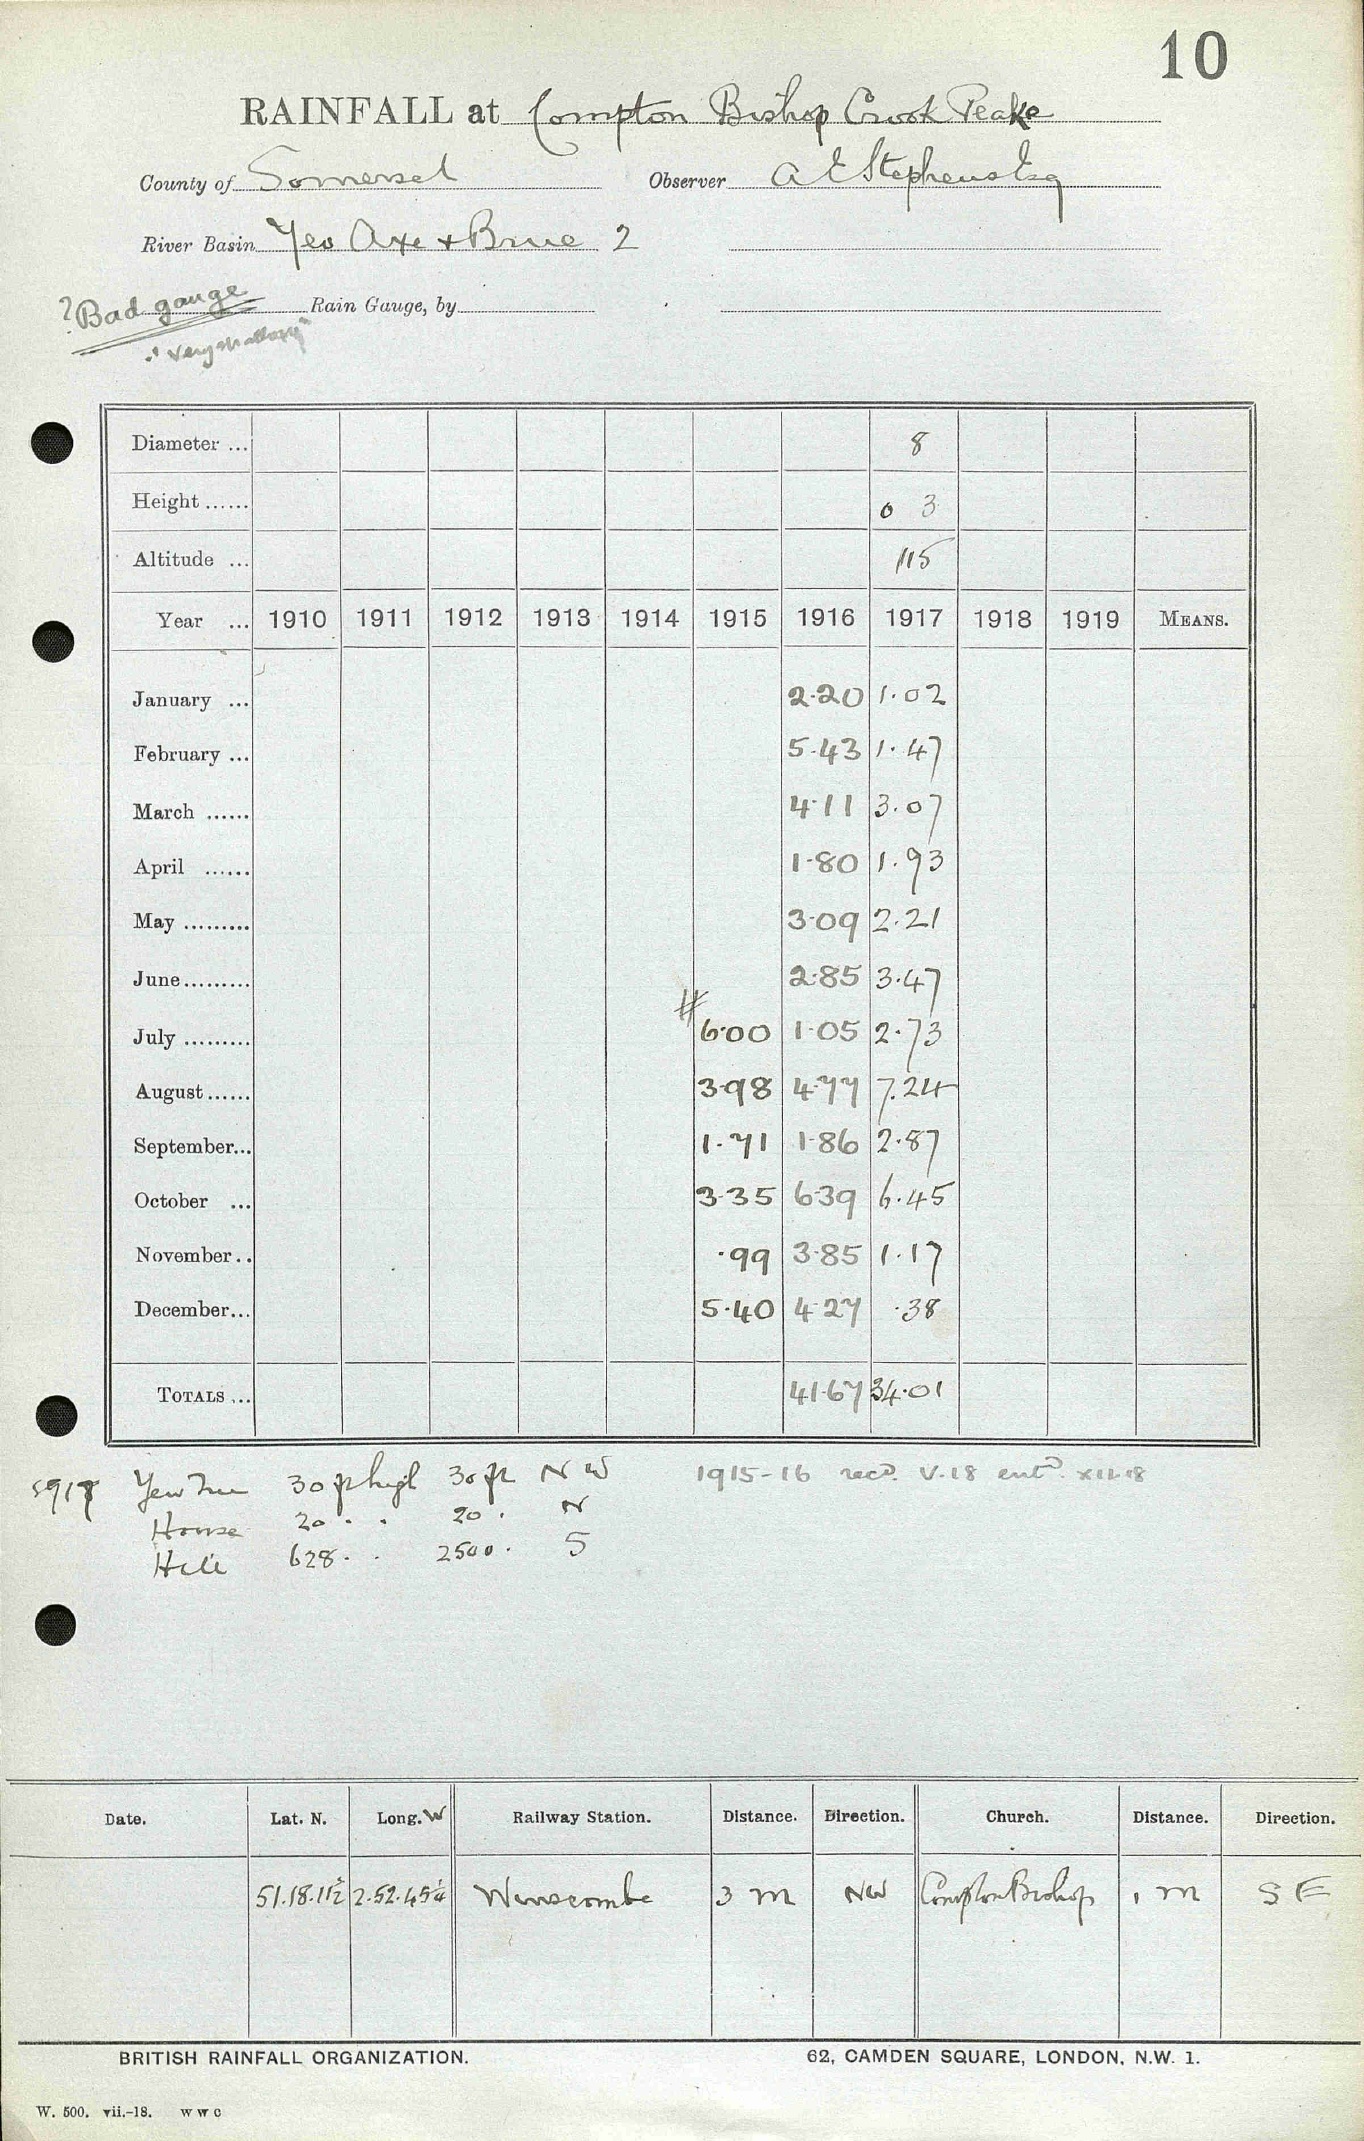 10
RAINFALL at Compton Bishop Crook Peake
County of Somerset Observer A E Stephens Esq
River Basin Yeo Axe + Brue 2
? Bad gauge Rain Gauge, by
"Very shallow"
Diameter ... 8
Height ...... 0 3
Altitude ... 115
Year ... 1910 1911 1912 1913 1914 1915 1916 1917 1918 1919 MEANS.
January ... 2.20 1.02
February ... 5.43 1.47
March ...... 4.11 3.07
April ...... 1.80 1.93
May ......... 3.09 2.21
June ......... 2.85 3.47
July ......... # 6.00 1.05 2.73
August ...... 3.98 4.77 7.24
September... 1.71 1.86 2.87
October ... 3.35 6.39 6.45
November.. .99 3.85 1.17
December... 5.40 4.27 .38
TOTALS ... 41.67 34.01
1917 Yew Tree 30 ft high 30 ft NW 1915-16 recd. V.18 entd. XII.18
House 20 . . 20 . N
Hill 628 . . 2500 . S
Date. Lat. N. Long. W Railway Station. Distance. Direction. Church. Distance. Direction.
51.18.11½ 2.52.45¼ Winscombe 3 m NW Compton Bishop 1 m SE
BRITISH RAINFALL ORGANIZATION. 62, CAMDEN SQUARE, LONDON, N.W. 1.
W. 500. vii.-18. W W C